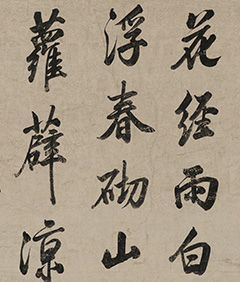 花経雨白
浮春砌山
蘿薜凉